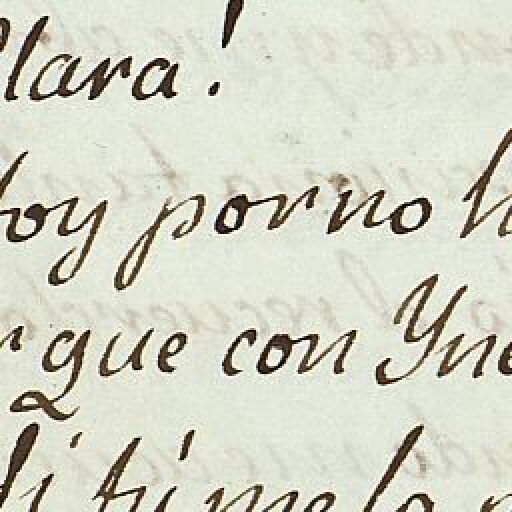 Clara!
toy porno h
r que con Yne
di tú me la